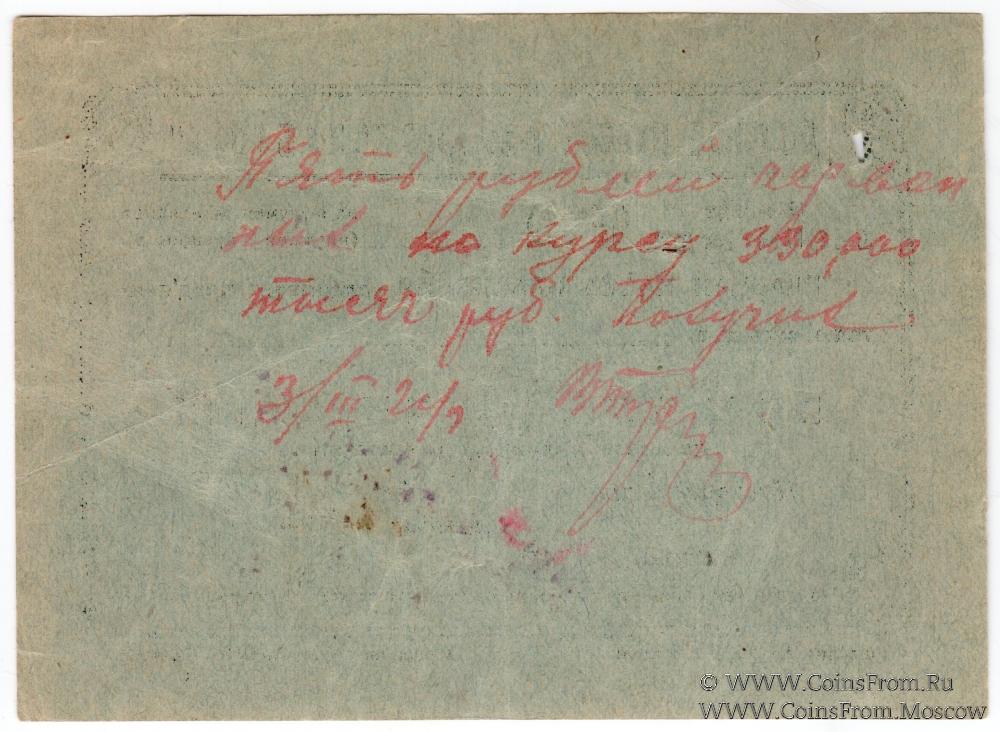 Пять рублей червон
ных по курсу 330,000
тысяч руб. Получив
3/III 24г
© WWW.CoinsFrom.Ru
WWW.CoinsFrom.Moscow